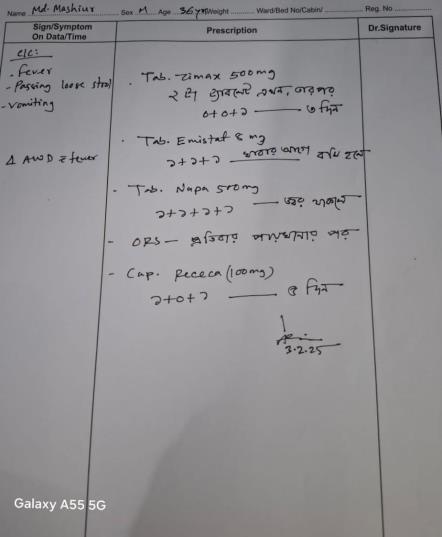 Name Md. Mashiur Sex M Age 36 yrs Weight Ward/Bed No/Cabin/ Reg. No
Sign/Symptom
On Data/Time
Prescription
Dr.Signature
C/C:
- Fever
- Passing loose stool
- vomiting
Δ AWD c̄ fever
- Tab. Zimax 500mg
২ টা ট্যাবলেট এখন, তারপর
0+0+১ — ৩ দিন
- Tab. Emistat 8 mg
১+১+১ — খাবার আগে বমি হলে
- Tab. Napa 500mg
১+১+১+১ — জ্বর থাকলে
- ORS — প্রতিবার পায়খানার পর
- Cap. Receca (100mg)
১+0+১ — দিন
3.2.25
Galaxy A55 5G